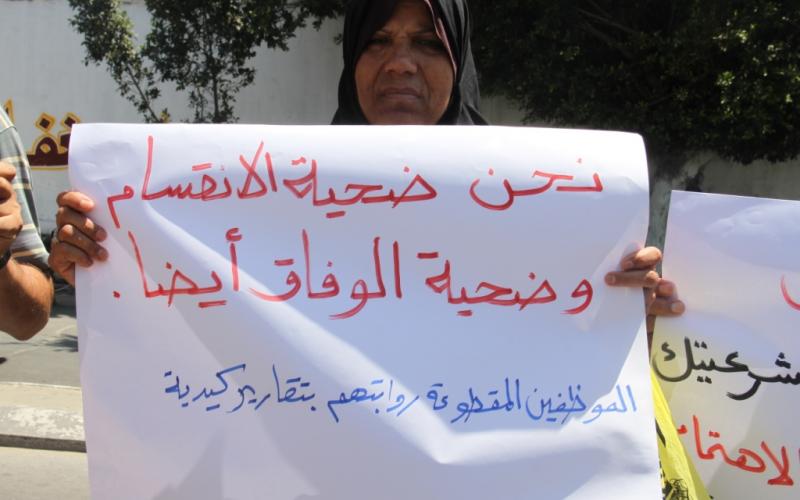 نحن ضحية الانقسام
وضحية الوفاق أيضا.
الموظفين المقطوعة رواتبهم بتقارير كيدية
شرعيتك